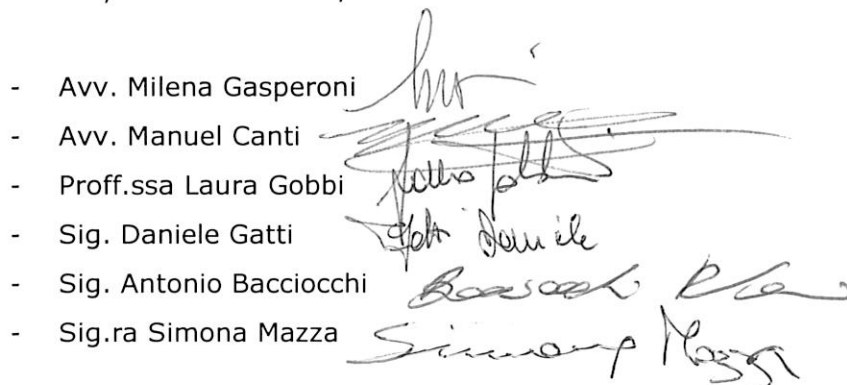 - Avv. Milena Gasperoni
- Avv. Manuel Canti
- Proff.ssa Laura Gobbi
- Sig. Daniele Gatti Gatti Daniele
- Sig. Antonio Bacciocchi
- Sig.ra Simona Mazza Simona Mazza